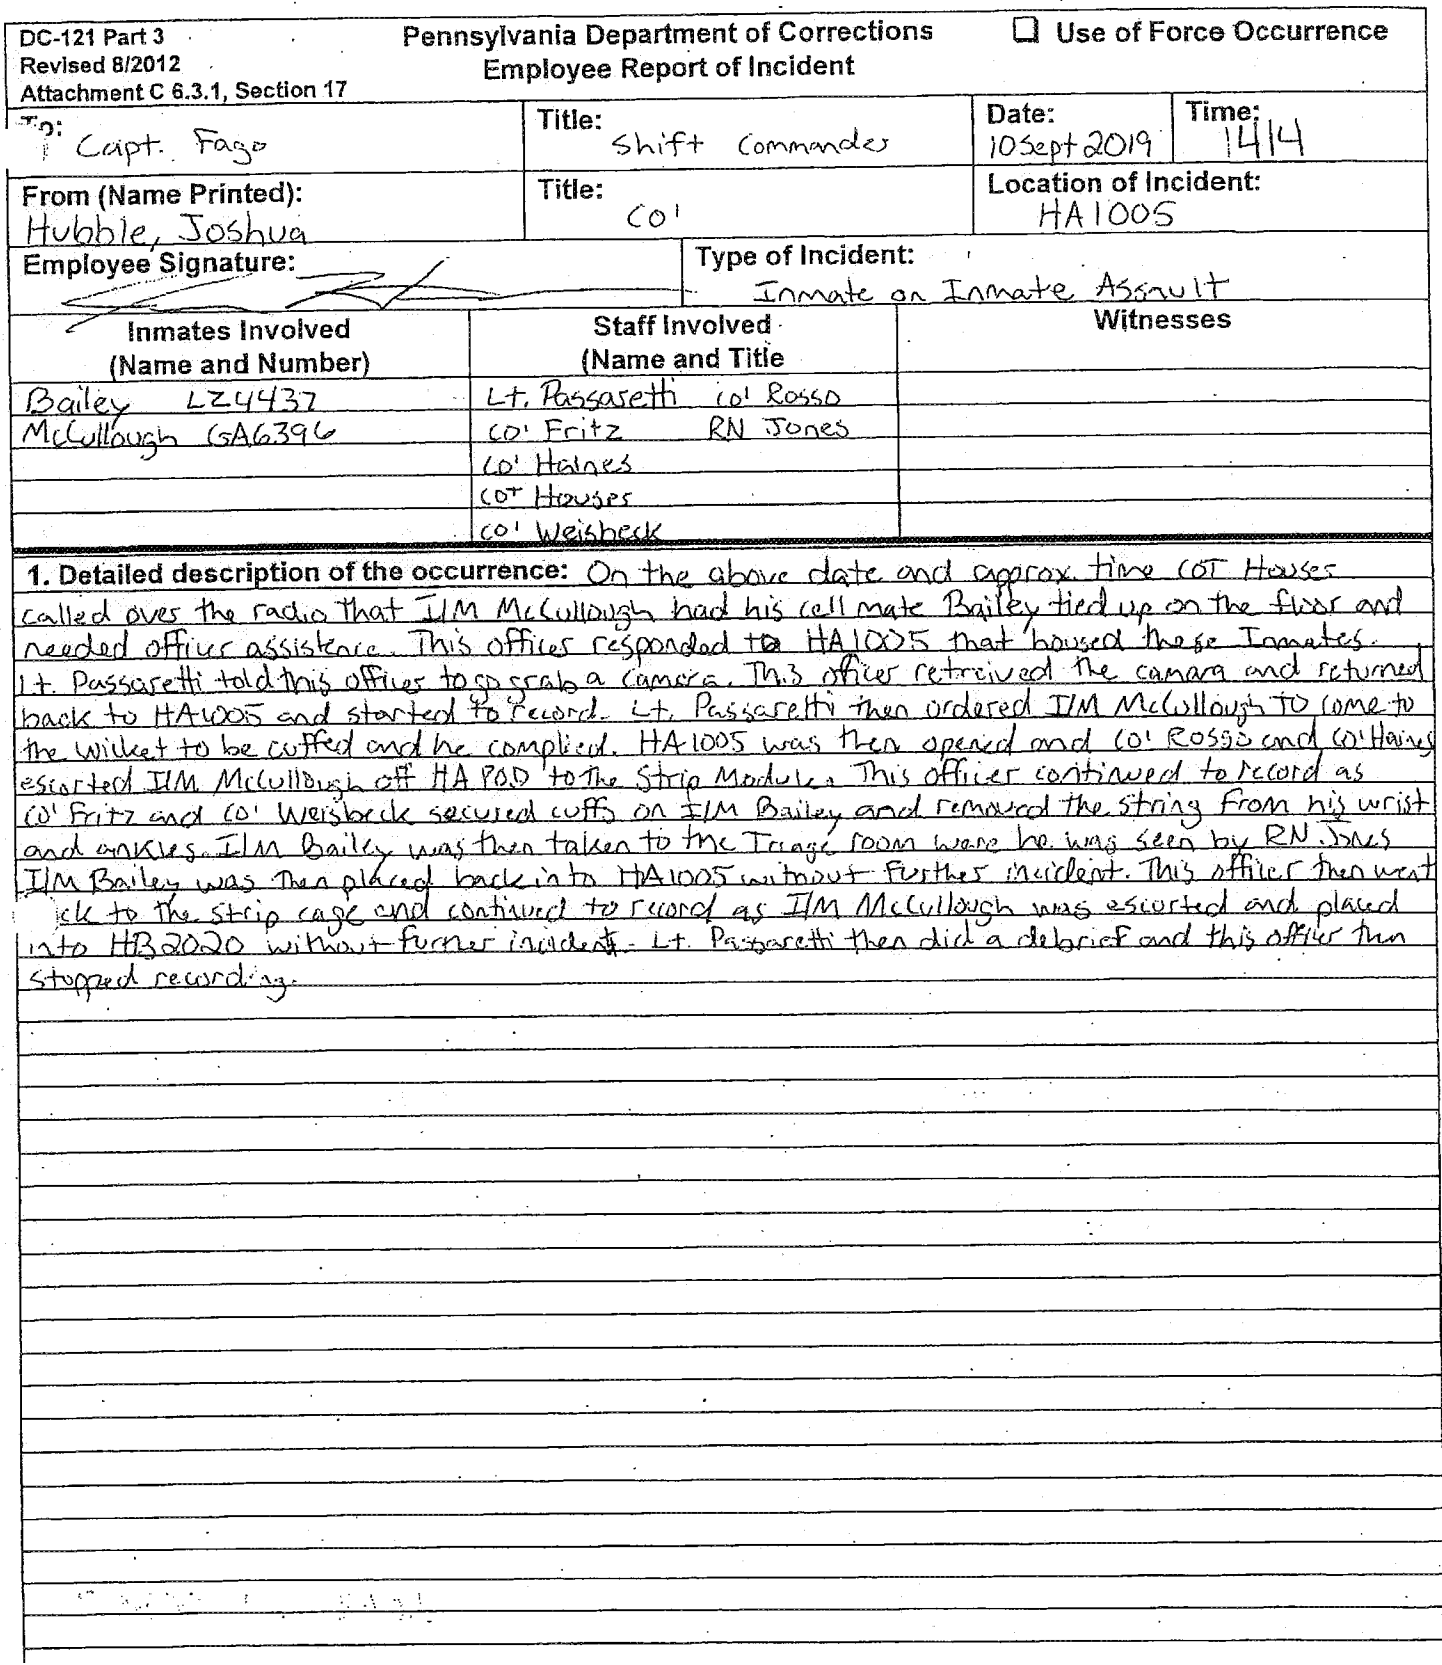 DC-121 Part 3
Revised 8/2012
Attachment C 6.3.1, Section 17
Pennsylvania Department of Corrections
Employee Report of Incident
☐ Use of Force Occurrence
To: Capt. Fago
Title: Shift Commander
Date: 10 Sept 2019
Time: 1414
From (Name Printed): Hubble, Joshua
Title: CO1
Location of Incident: HA1005
Employee Signature:
Type of Incident: Inmate on Inmate Assault
Inmates Involved
(Name and Number)
Staff Involved
(Name and Title
Witnesses
Bailey LZ4437
Lt. Passaretti CO1 Rosso
McCullough GA6396
CO1 Fritz RN Jones
CO1 Haines
COT Houser
CO1 Weisbeck
1. Detailed description of the occurrence: On the above date and approx. time COT Houser
called over the radio that I/M McCullough had his cell mate Bailey tied up on the floor and
needed officer assistence. This officer responded to HA1005 that housed these Inmates.
Lt. Passaretti told this officer to go grab a camera. This officer retreived the camara and returned
back to HA1005 and started to record. Lt. Passaretti then ordered I/M McCullough to come to
the wicket to be cuffed and he complied. HA1005 was then opened and CO1 Rosso and CO1 Haines
escorted I/M McCullough off HA POD to the Strip Module. This officer continued to record as
CO1 Fritz and CO1 Weisbeck secured cuffs on I/M Bailey and removed the string from his wrist
and ankles. I/M Bailey was then taken to the Triage room were he was seen by RN Jones
I/M Bailey was then placed back into HA1005 without further incident. This officer then went
ck to the strip cage and continued to record as I/M McCullough was escorted and placed
into HB2020 without further incident. Lt. Passaretti then did a debrief and this officer then
stopped recording.